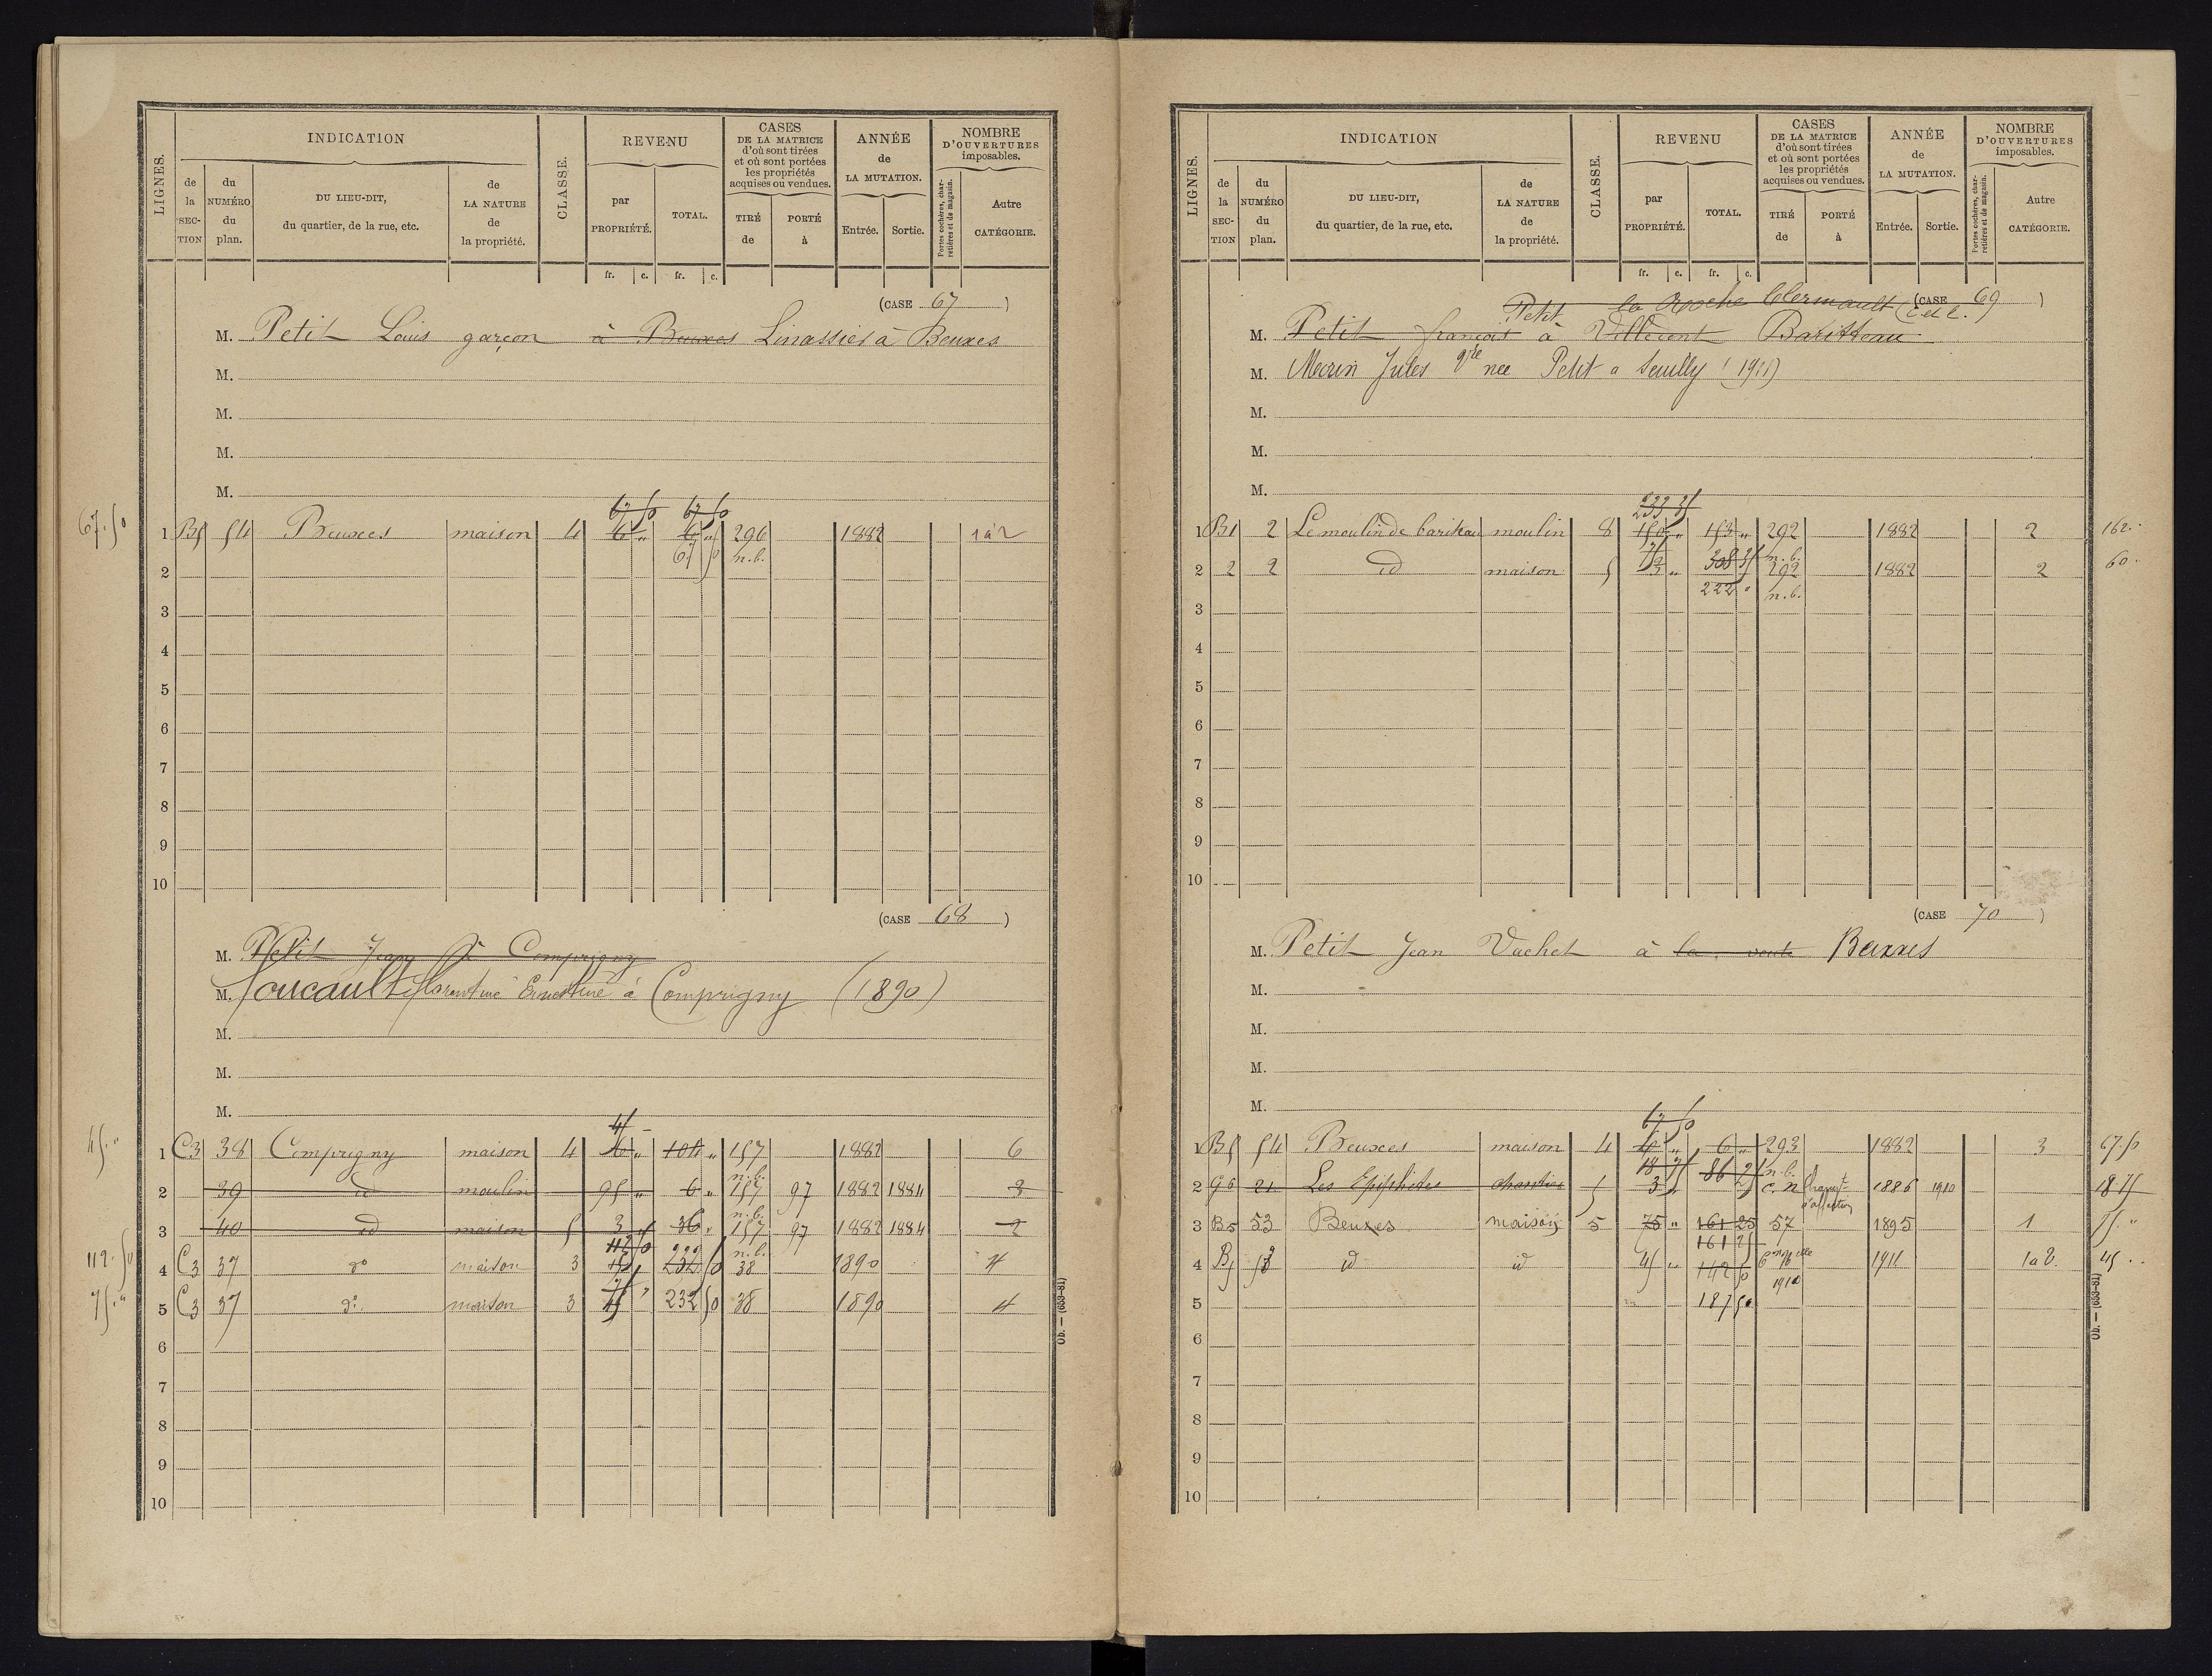 LIGNES. INDICATION CLASSE. REVENU CASES DE LA MATRICE d'où sont tirées et où sont portées les propriétés acquises ou vendues. ANNÉE de LA MUTATION. NOMBRE D'OUVERTURES imposables.
de la SECTION du NUMÉRO du plan. DU LIEU-DIT, du quartier, de la rue, etc. de LA NATURE de la propriété. par PROPRIÉTÉ. TOTAL. TIRÉ de PORTÉ à Entrée. Sortie. Portes cochères, charretières et de magasin. Autre CATÉGORIE.
fr. c. fr. c.
(CASE 67)
M. Petit Louis garçon à Beuxes Linassier à Beuxes
M.
M.
M.
M.
67 50 67 50
67.50 1 B5 54 Beuxes maison 4 6 " 6 " 296 1882 1à2
2 67 50 n.b.
3
4
5
6
7
8
9
10
(CASE 68)
M. Petit Jean à Comprigny
M. Foucault Florentine Ernestine à Comprigny (1890)
M.
M.
M.
45 –
45." 1 C3 38 Comprigny maison 4 6 " 104 " 157 1882 6
n.b.
2 39 id moulin 95 " 6 " 157 97 1882 1884 3
n.b.
3 40 id maison 5 3 " 36 " 157 97 1882 1884 2
112 50 n.b.
112.50 4 C3 37 do maison 3 232 50 38 1890 4
75." 5 C3 37 do maison 3 232 50 38 1890 4
6
7
8
9
10
Ob. — (653-81)
LIGNES. INDICATION CLASSE. REVENU CASES DE LA MATRICE d'où sont tirées et où sont portées les propriétés acquises ou vendues. ANNÉE de LA MUTATION. NOMBRE D'OUVERTURES imposables.
de la SECTION du NUMÉRO du plan. DU LIEU-DIT, du quartier, de la rue, etc. de LA NATURE de la propriété. par PROPRIÉTÉ. TOTAL. TIRÉ de PORTÉ à Entrée. Sortie. Portes cochères, charretières et de magasin. Autre CATÉGORIE.
fr. c. fr. c.
Petit la Roche Clermault (CASE 69)
M. Petit françois à Baritteau
M. Jules née Petit a Seuilly
M.
M.
M.
233 35
1 B1 2 Le moulin de bariteau moulin 8 150 " 153 " 292 1882 2 162.
75 308 35 n.b.
2 2 2 id maison 5 3 " 292 1882 2 60.
222 " n.b.
3
4
5
6
7
8
9
10
(CASE 70)
M. Petit Jean Vachet à la Beuxes
M.
M.
M.
M.
67 50
1 B5 54 Beuxes maison 4 6 " 6 " 293 1882 3 67.50
18 75 86 25 n.b.
2 G6 21 Les 5 3 " c.n 1886 1910 18.75
3 B5 53 Beuxes maison 5 75 " 161 25 57 1895 1 75."
161 25
4 B5 id id 45 " 142 50 1911 1a2. 45..
1910
5 187 50
6
7
8
9
10
Ob. — (653-81)